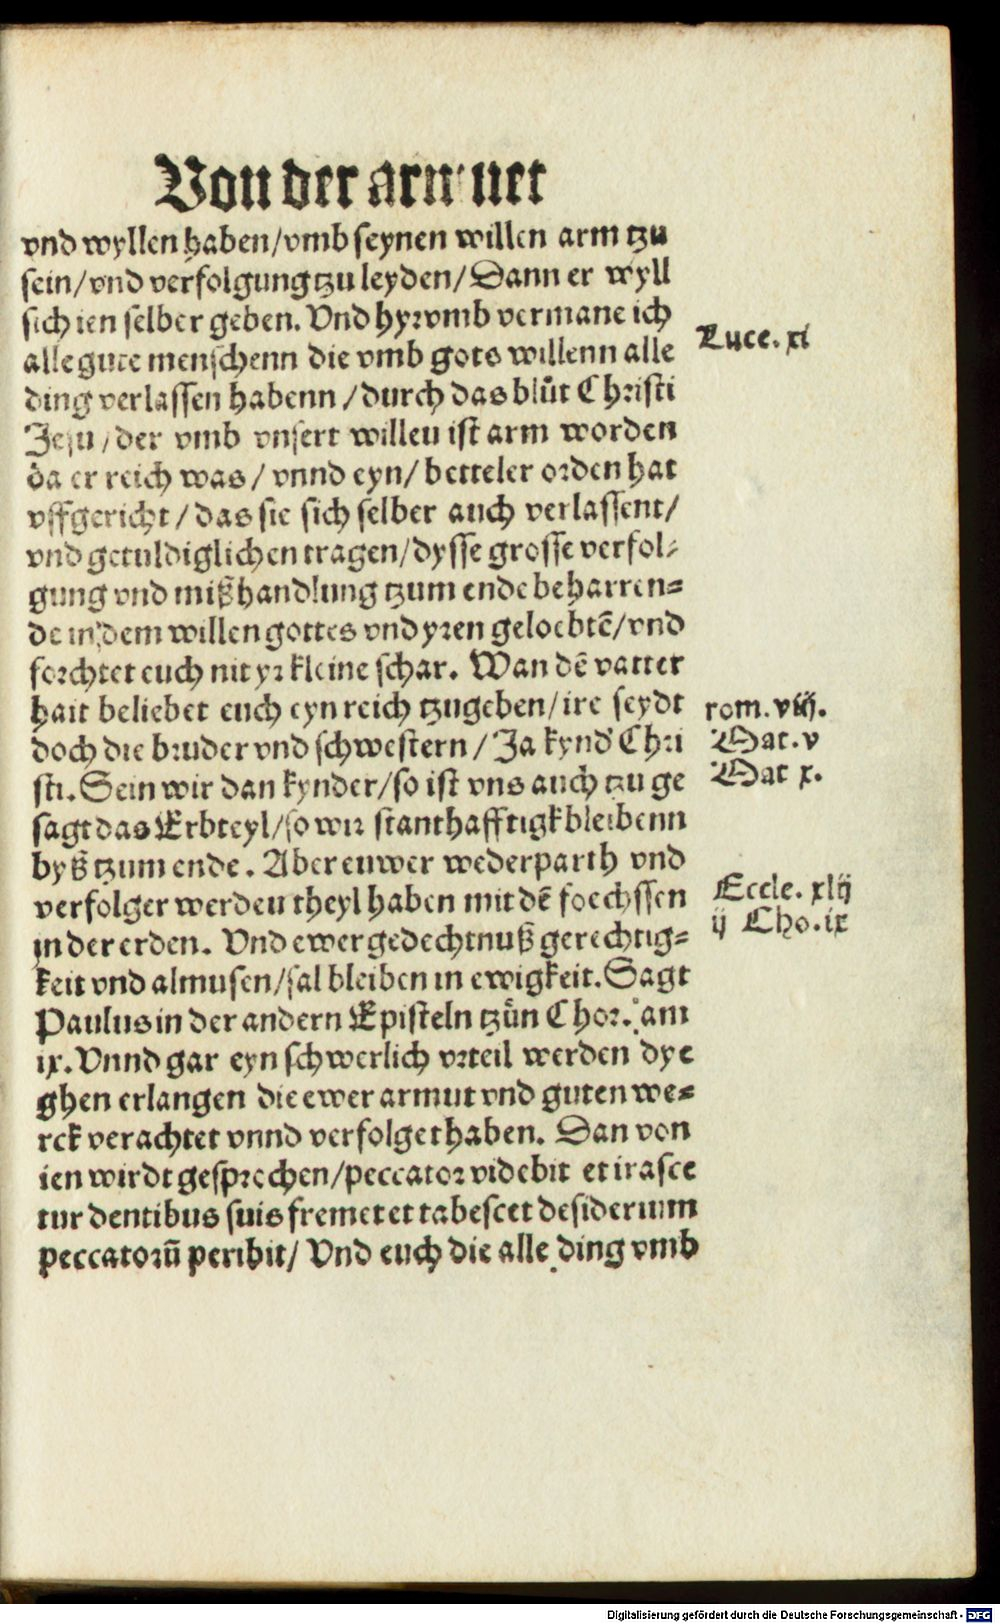 Von der armuet
vnd wyllen haben/vmb seynen willen arm tzu
sein/vnd verfolgung tzu leyden/Dann er wyll
sich ien selber geben. Vnd hyrvmb vermane ich
alle gute menschenn die vmb gots willenn alle
Luce. xi
ding verlassen habenn/durch das blůt Christi
Jesu/der vmb vnsert willeu ist arm worden
da er reich was/vnnd eyn/betteler orden hat
vffgericht/das sie sich selber auch verlassent/
vnd getuldiglichen tragen/dysse grosse verfol-
gung vnd mißhandlung tzum ende beharren-
de in dem willen gottes vnd yren geloebtē/vnd
forchtet euch nit yr kleine schar. Wan dē vatter
hait beliebet euch eyn reich tzugeben/ire seydt
rom. viij.
doch die bruder vnd schwestern/Ja kynd Chri
Mat. v
sti. Sein wir dan kynder/so ist vns auch tzu ge
Mat x.
sagt das Erbteyl/so wir stanthafftigk bleibenn
byß tzum ende. Aber euwer wederparth vnd
verfolger werdeu theyl haben mit dē foechssen
Eccle. xlij
in der erden. Vnd ewer gedechtnuß gerechtig-
ij Cho. ix
keit vnd almusen/sal bleiben in ewigkeit. Sagt
Paulus in der andern Episteln tzůn Chor. am
ix. Vnnd gar eyn schwerlich vrteil werden dye
ghen erlangen die ewer armut vnd guten we-
rck verachtet vnnd verfolget haben. Dan von
ien wirdt gesprochen/peccator videbit et irasce
tur dentibus suis fremet et tabescet desiderium
peccatorū peribit/Vnd euch die alle ding vmb
Digitalisierung gefördert durch die Deutsche Forschungsgemeinschaft - DFG